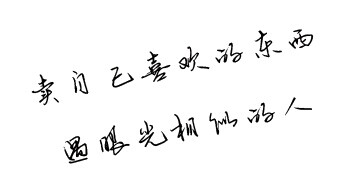 卖自己喜欢的东西
遇眼光相似的人